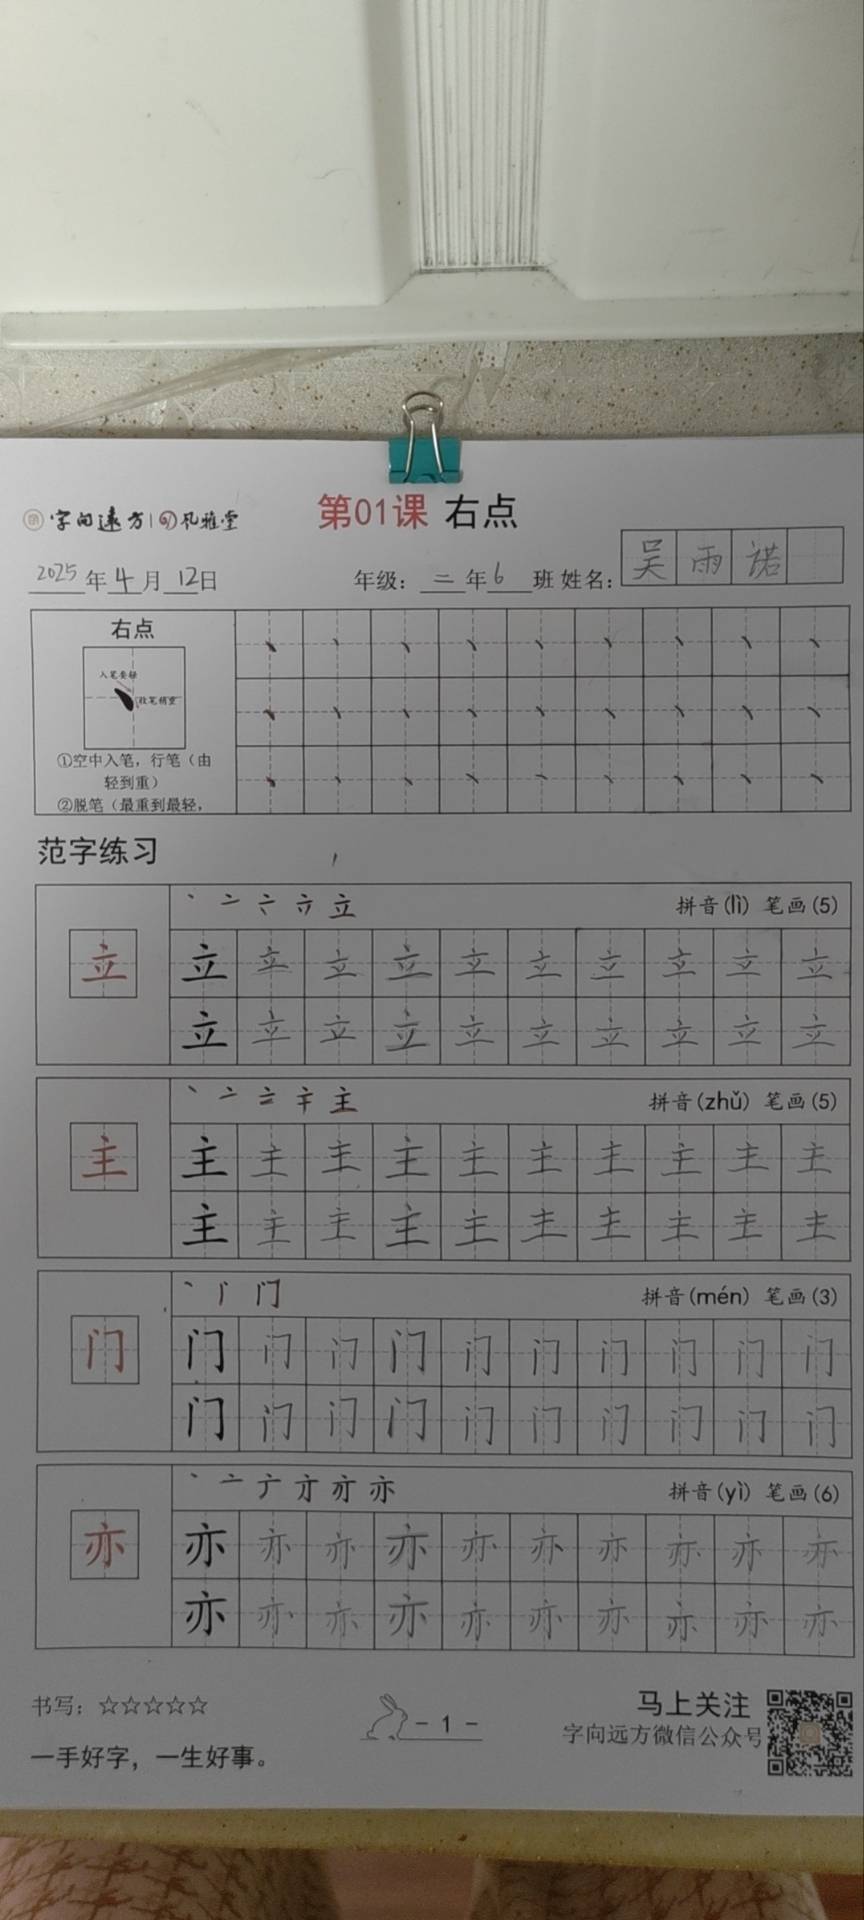 字向远方 风雅堂
第01课 右点
2025年4月12日 年级：二年6班 姓名：吴雨诺
右点
入笔要轻
收笔稍重
①空中入笔，行笔（由
轻到重）
②脱笔（最重到最轻，
范字练习
立 拼音(lì) 笔画(5)
立 立 立 立 立 立 立 立 立 立 立
立 立 立 立 立 立 立 立 立 立
主 拼音(zhǔ) 笔画(5)
主 主 主 主 主 主 主 主 主 主 主
主 主 主 主 主 主 主 主 主 主
门 拼音(mén) 笔画(3)
门 门 门 门 门 门 门 门 门 门 门
门 门 门 门 门 门 门 门 门 门
亦 拼音(yì) 笔画(6)
亦 亦 亦 亦 亦 亦 亦 亦 亦 亦 亦
亦 亦 亦 亦 亦 亦 亦 亦 亦 亦
书写：☆☆☆☆☆
一手好字，一生好事。
- 1 -
马上关注
字向远方微信公众号